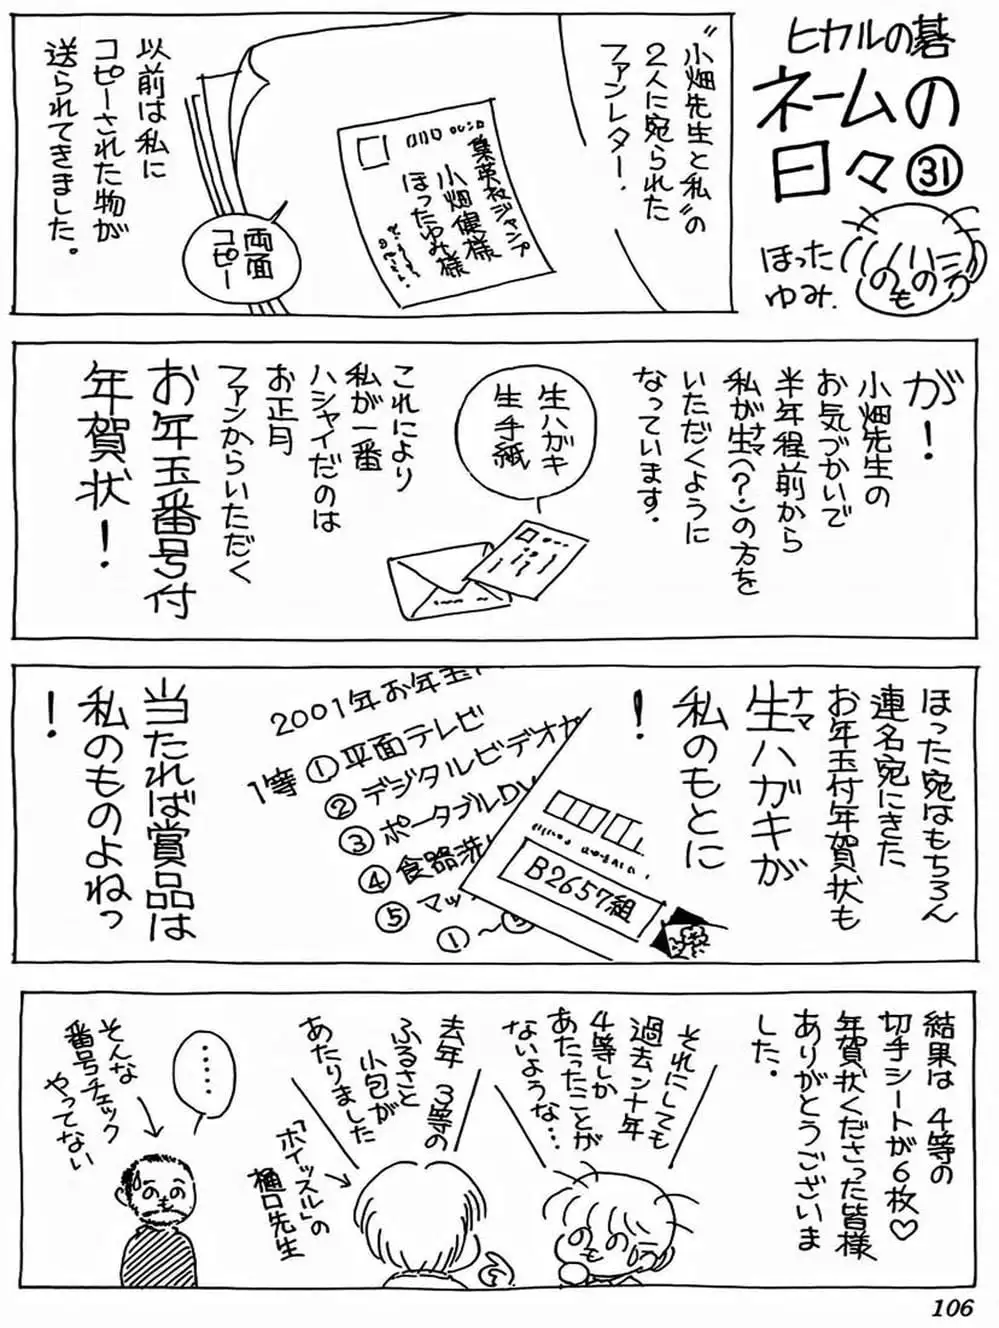 ヒカルの碁
ネームの
日々㉛
ほった
ゆみ.
"小畑先生と私"の
2人に宛られた
ファンレター.
集英社ジャンプ
小畑健様
ほったゆみ様
以前は私に
コピーされた物が
送られてきました。
両面
コピー
が!
小畑先生の
お気づかいで
半年程前から
私が生(?)の方を
ナマ
いただくように
なっています.
生ハガキ
生手紙
これにより
私が一番
ハシャイだのは
お正月
ファンからいただく
お年玉番号付
年賀状!
ほった宛はもちろん
連名宛にきた
お年玉付年賀状も
生ハガキが
ナマ
私のもとに
!
2001年お年玉
1等①平面テレビ
②デジタルビデオカ
③ポータブルDV
④食器洗
⑤マッ
①〜⑤
B2657組
当たれば賞品は
私のものよねっ
!
結果は4等の
切手シートが6枚♡
年賀状くださった皆様
ありがとうございま
した..
それにしても
過去ン十年
4等しか
あたったことが
ないような…
去年3等の
ふるさと
小包が
あたりました
「ホイッスル」の
樋口先生
……
そんな
番号チェック
やってない
106